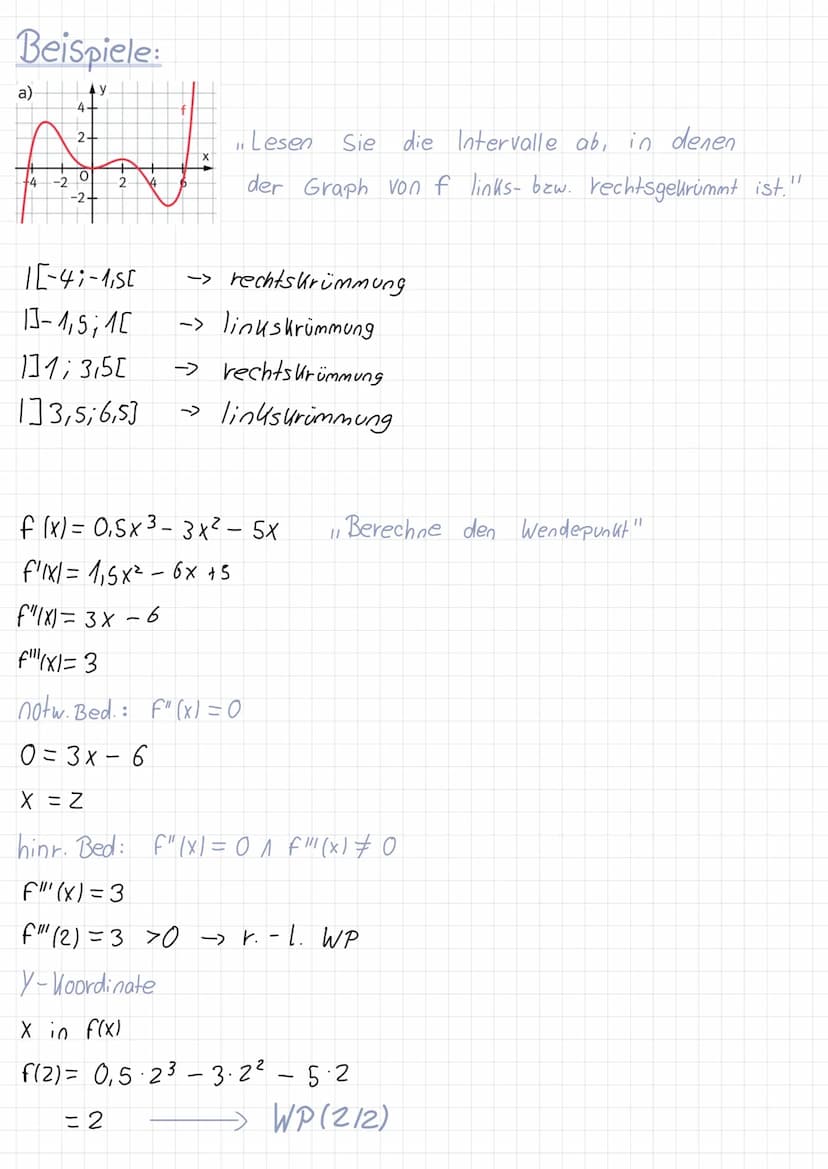 Beispiele:
a)
y
4
f
2
x
-4 -2 0 2 4 6
-2
„Lesen Sie die Intervalle ab, in denen
der Graph von f links- bzw. rechtsgekrümmt ist."
I[-4;-1,5[ -> rechtskrümmung
I]-1,5;1[ -> linkskrümmung
I]1;3,5[ -> rechtskrümmung
I]3,5;6,5] -> linkskrümmung
f(x) = 0,5x³ - 3x² - 5x „Berechne den Wendepunkt"
f'(x) = 1,5x² - 6x + 5
f''(x) = 3x - 6
f'''(x) = 3
notw. Bed.: f''(x) = 0
0 = 3x - 6
x = 2
hinr. Bed: f''(x) = 0 ∧ f'''(x) ≠ 0
f'''(x) = 3
f'''(2) = 3 >0 -> r.-l. WP
y-Koordinate
x in f(x)
f(2) = 0,5·2³ - 3·2² - 5·2
= 2 → WP(2/2)